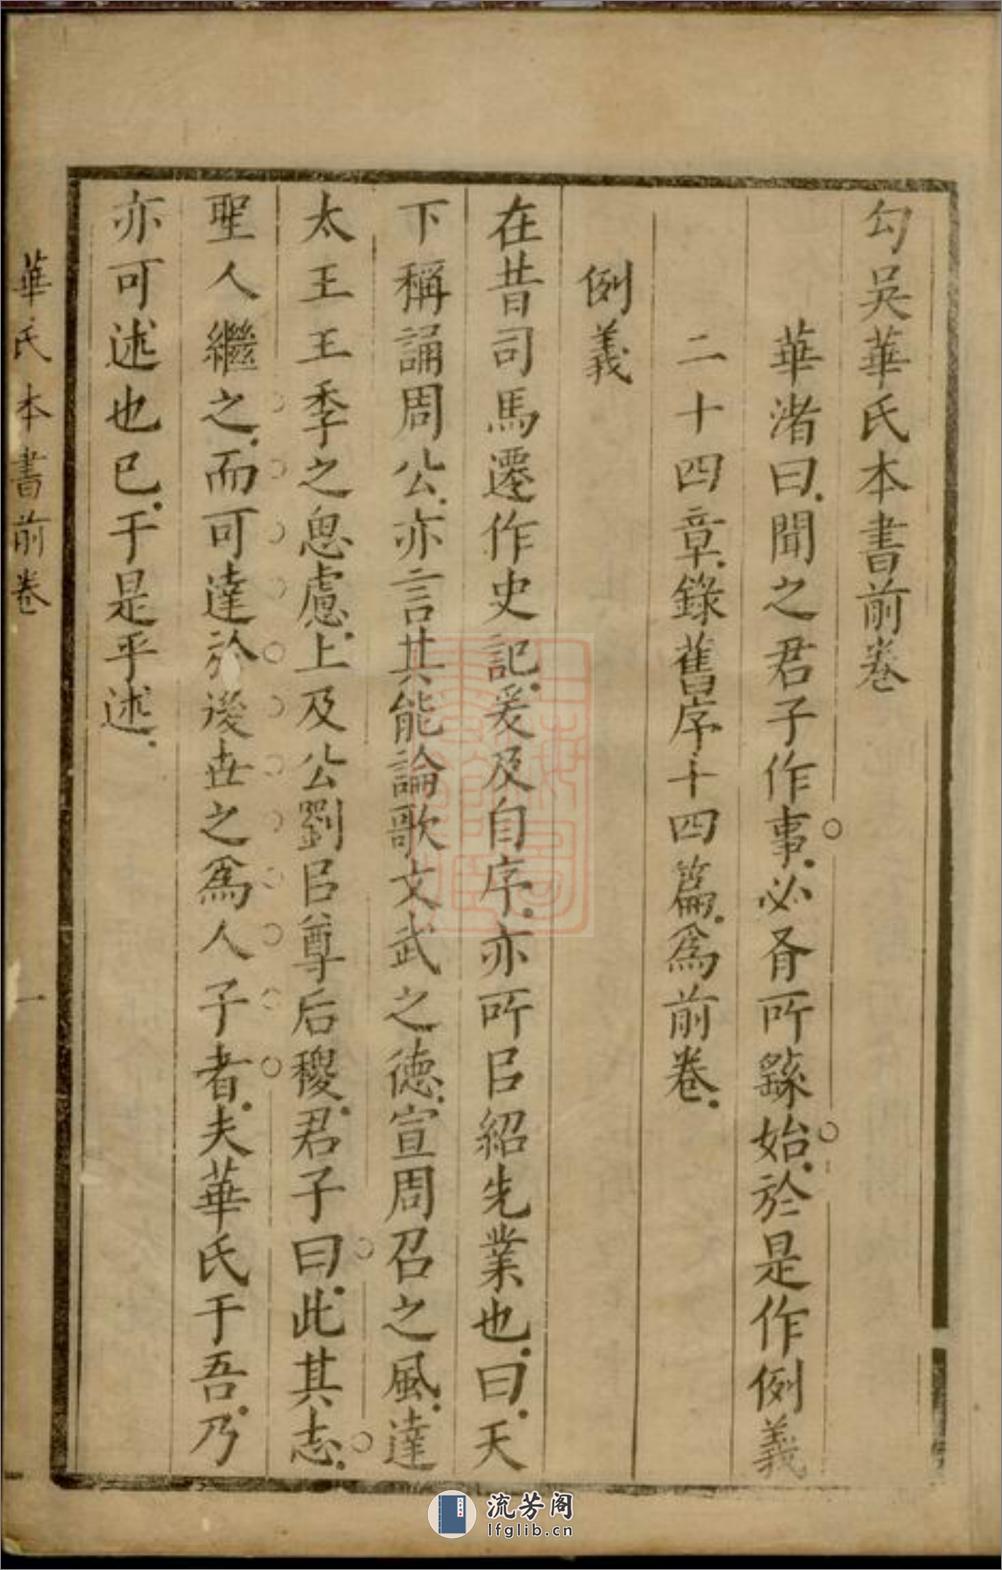 勾吳華氏本書前卷
華渚曰.聞之君子作事.必有所繇始.於是作例義
二十四章.錄舊序十四篇.為前卷.
例義
在昔司馬遷作史記.爰及自序.亦所㠯紹先業也.曰.天
下稱誦周公.亦言其能論歌文武之德.宣周召之風.達
太王王季之思慮.上及公劉㠯尊后稷.君子曰.此其志.
聖人繼之.而可達於後世之為人子者.夫華氏于吾.乃
亦可述也已.于是乎述.
華氏本書前卷
一
流芳阁
lfglib.cn